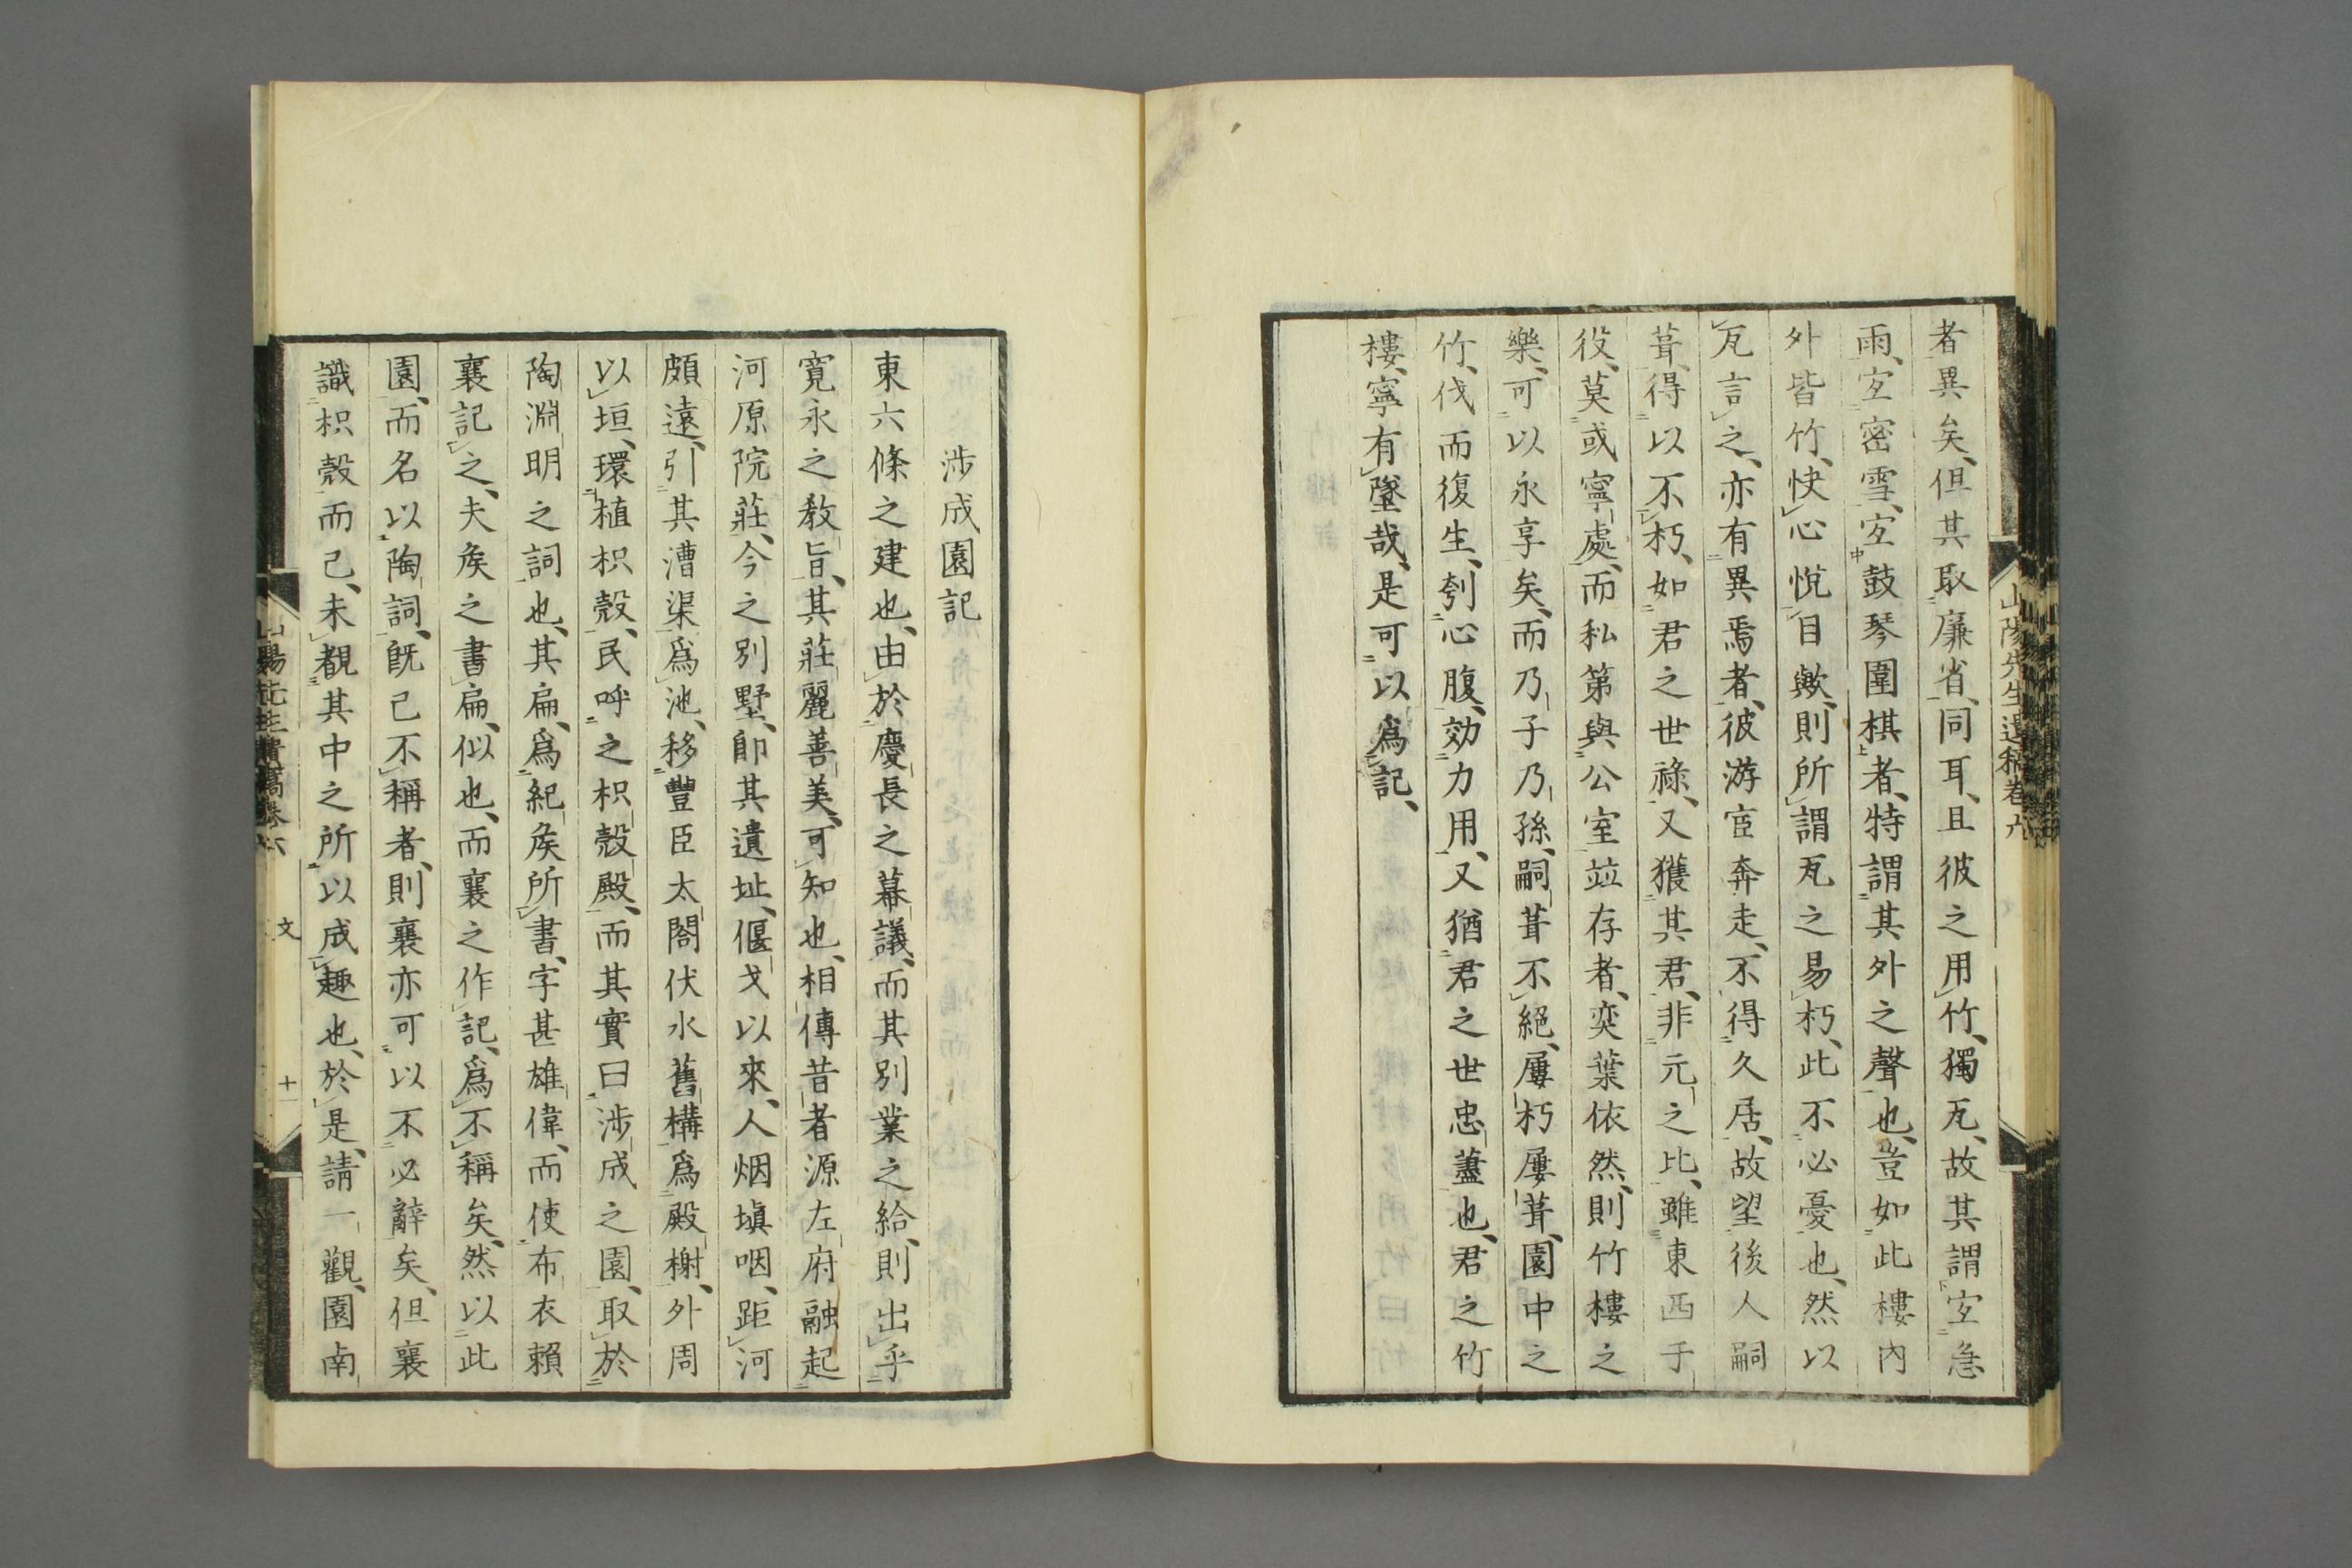 山陽先生遺稿卷六
者異矣、但其取廉省、同耳、且彼之用竹、獨瓦、故其謂宐急
雨、宐密雪、宐鼓琴圍棋者、特謂其外之聲也、豈如此樓內
外皆竹、快心悅目歟、則所謂瓦之易朽、此不必憂也、然以
瓦言之、亦有異焉者、彼游宦奔走、不得久居、故望後人嗣
葺、得以不朽、如君之世祿、又獲其君、非元之比、雖東西于
役、莫或寧處、而私第與公室竝存者、奕葉依然、則竹樓之
樂、可以永享矣、而乃子乃孫、嗣葺不絕、屢朽屢葺、園中之
竹、伐而復生、刳心腹、効力用、又猶君之世忠藎也、君之竹
樓、寧有墜哉、是可以爲記、
涉成園記
東六條之建也、由於慶長之幕議、而其別業之給、則出乎
寬永之敎旨、其莊麗善美、可知也、相傳昔者源左府融起
河原院莊、今之別墅、卽其遺址、偃戈以來、人烟塡咽、距河
頗遠、引其漕渠爲池、移豐臣太閤伏水舊構爲殿榭、外周
以垣、環植枳殼、民呼之枳殼殿、而其實曰涉成之園、取於
陶淵明之詞也、其扁、爲紀矦所書、字甚雄偉、而使布衣賴
襄記之、夫矦之書扁、似也、而襄之作記、爲不稱矣、然以此
園、而名以陶詞、旣已不稱者、則襄亦可以不必辭矣、但襄
識枳殼而已、未覩其中之所以成趣也、於是、請一觀、園南
文
十一